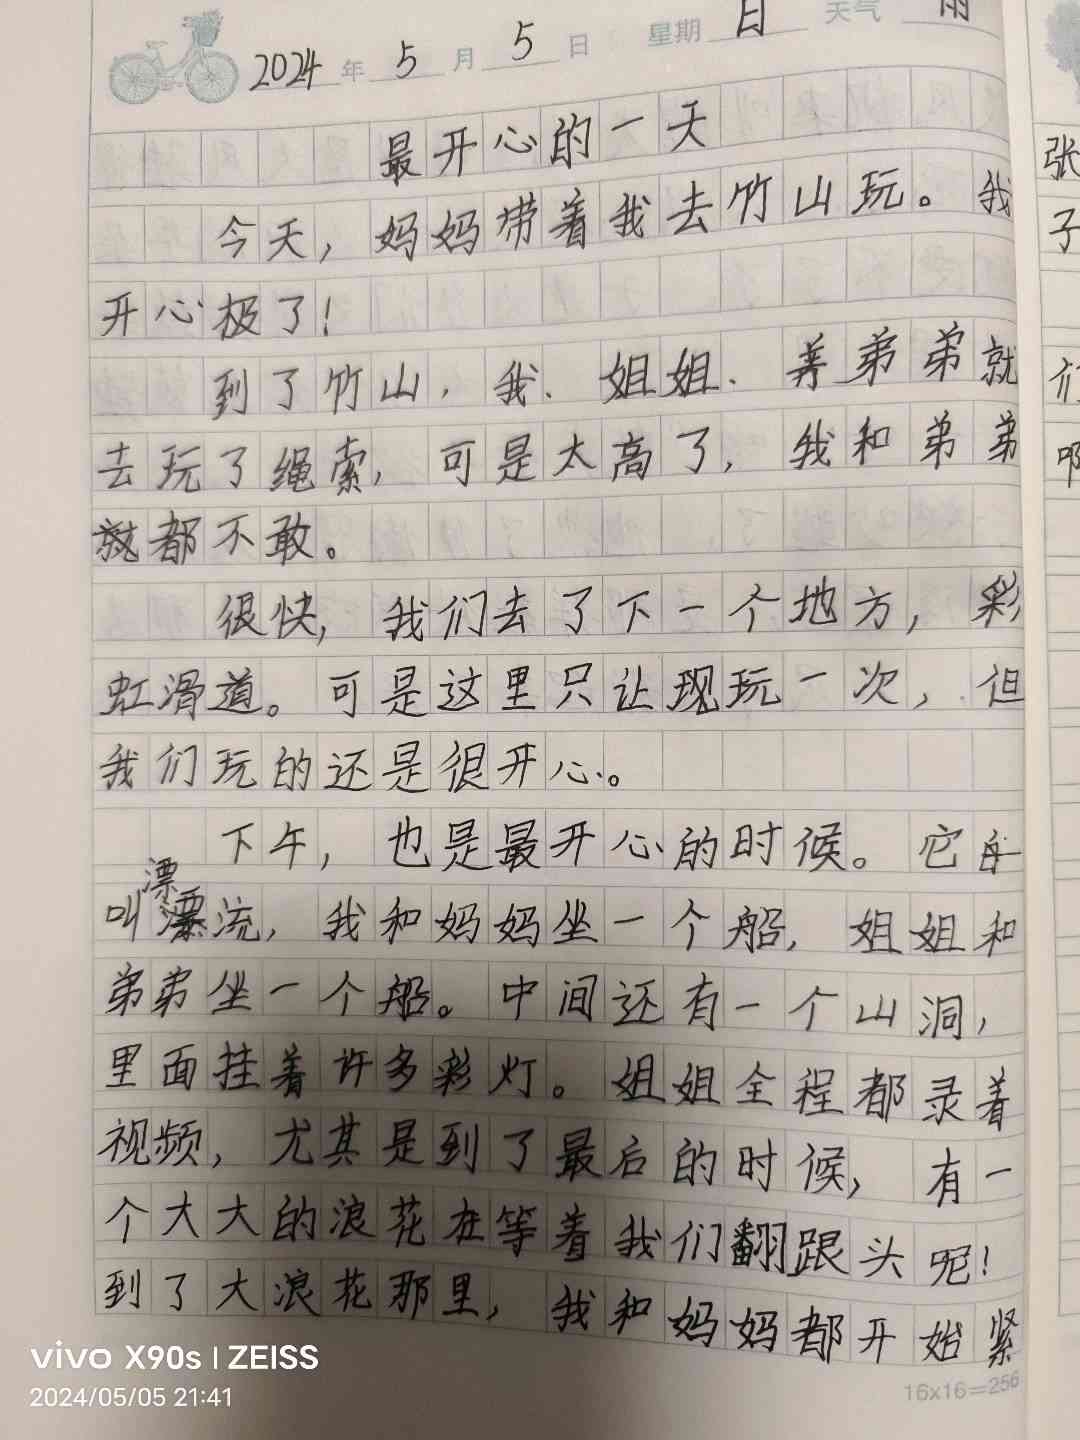 2024年5月5日 星期日 天气雨
最开心的一天
今天，妈妈带着我去竹山玩。我
开心极了！
到了竹山，我、姐姐、弟弟就
去玩了绳索，可是太高了，我和弟弟
就都不敢。
很快，我们去了下一个地方，彩
虹滑道。可是这里只让现玩一次，但
我们玩的还是很开心。
下午，也是最开心的时候。它
漂
叫流，我和妈妈坐一个船，姐姐和
弟弟坐一个船。中间还有一个山洞，
里面挂着许多彩灯。姐姐全程都录着
视频，尤其是到了最后的时候，有一
个大大的浪花在等着我们翻跟头呢！
到了大浪花那里，我和妈妈都开始紧
16x16=256
张
子
们
啊
vivo X90s | ZEISS
2024/05/05 21:41